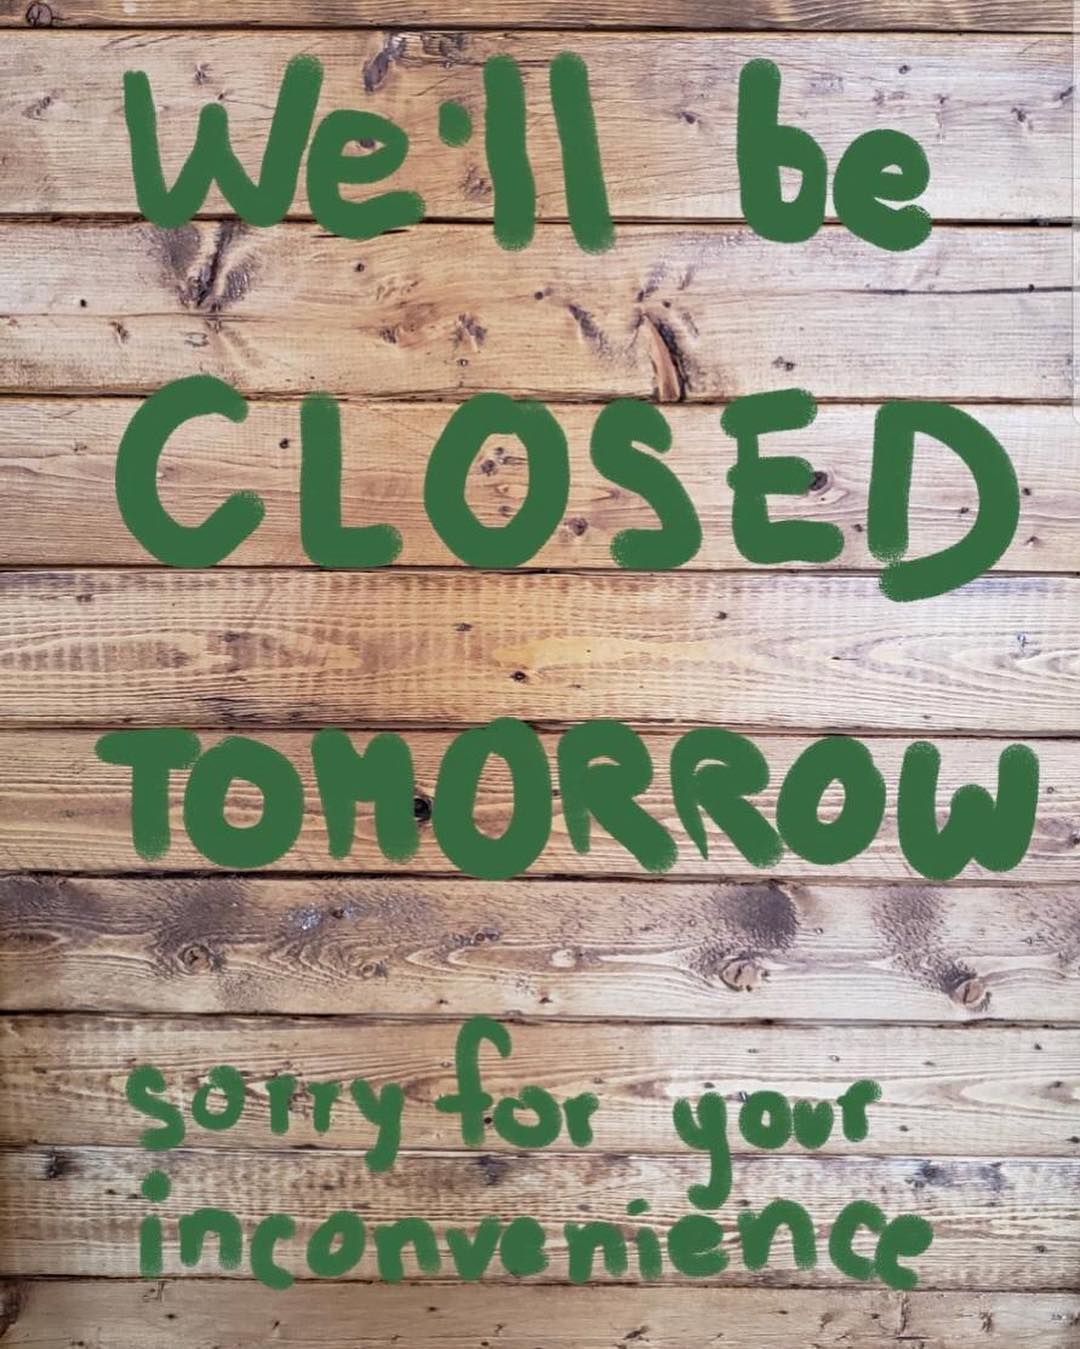 We'll be
CLOSED
TOMORROW
sorry for your
inconvenience